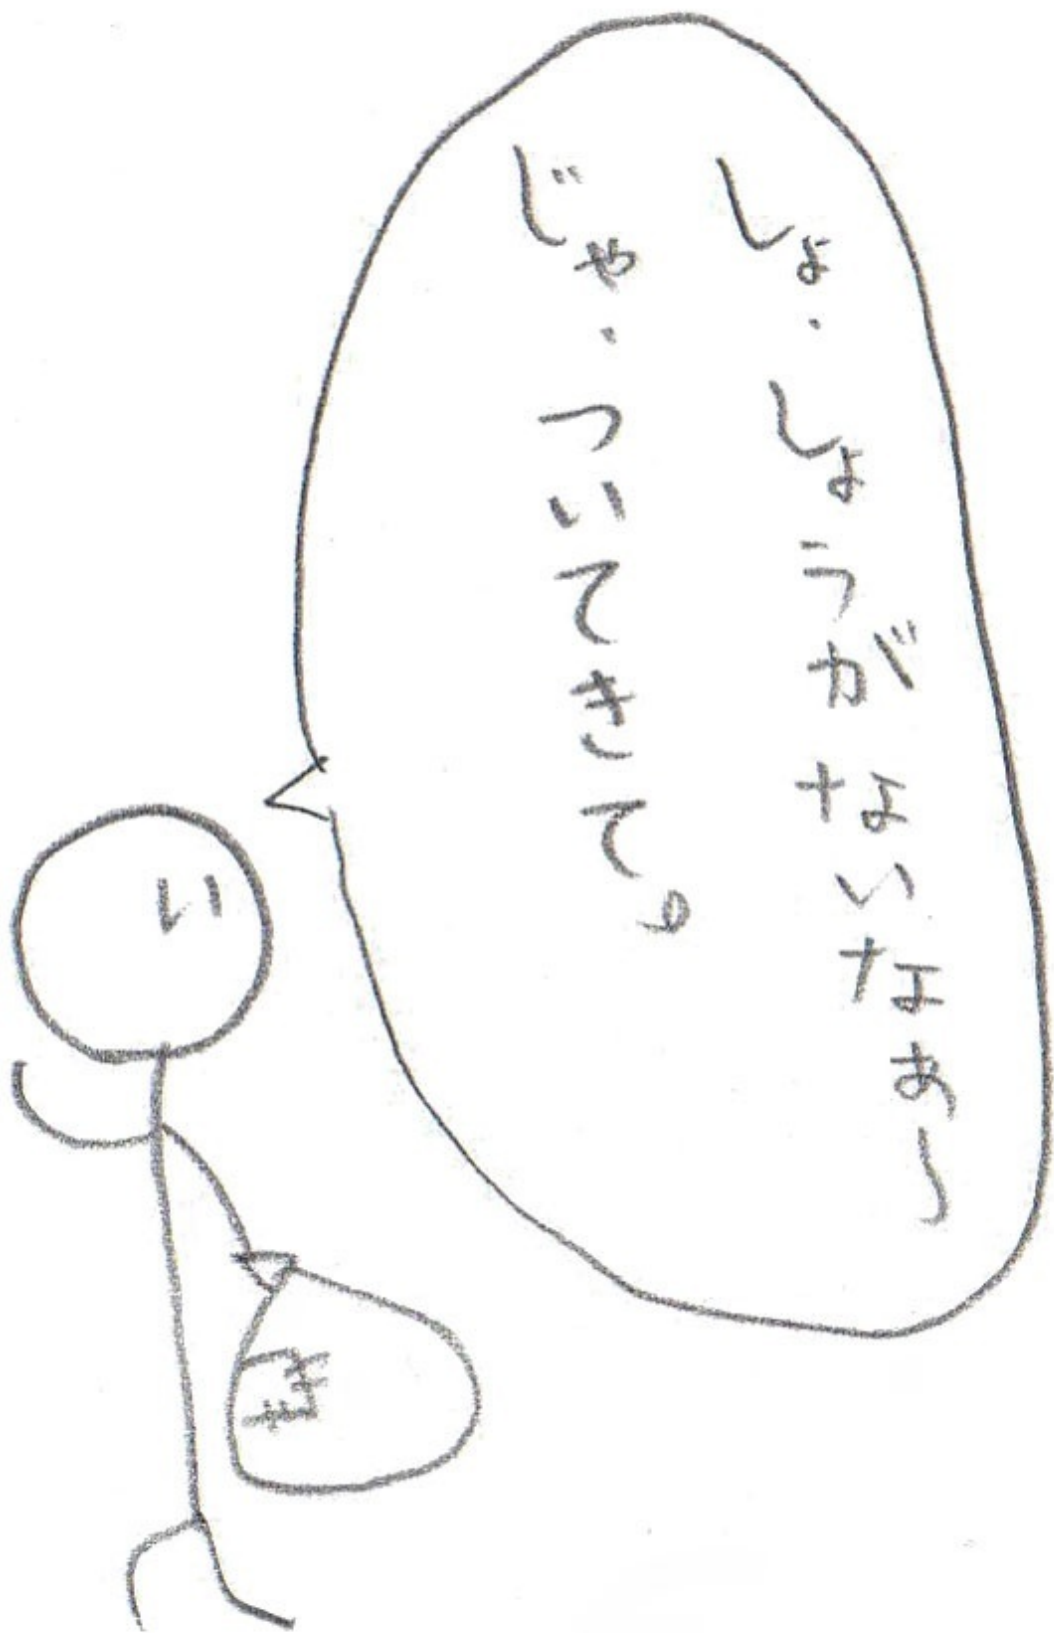 しょ・しょうがないなぁ〜
じゃ・ついてきて。
い